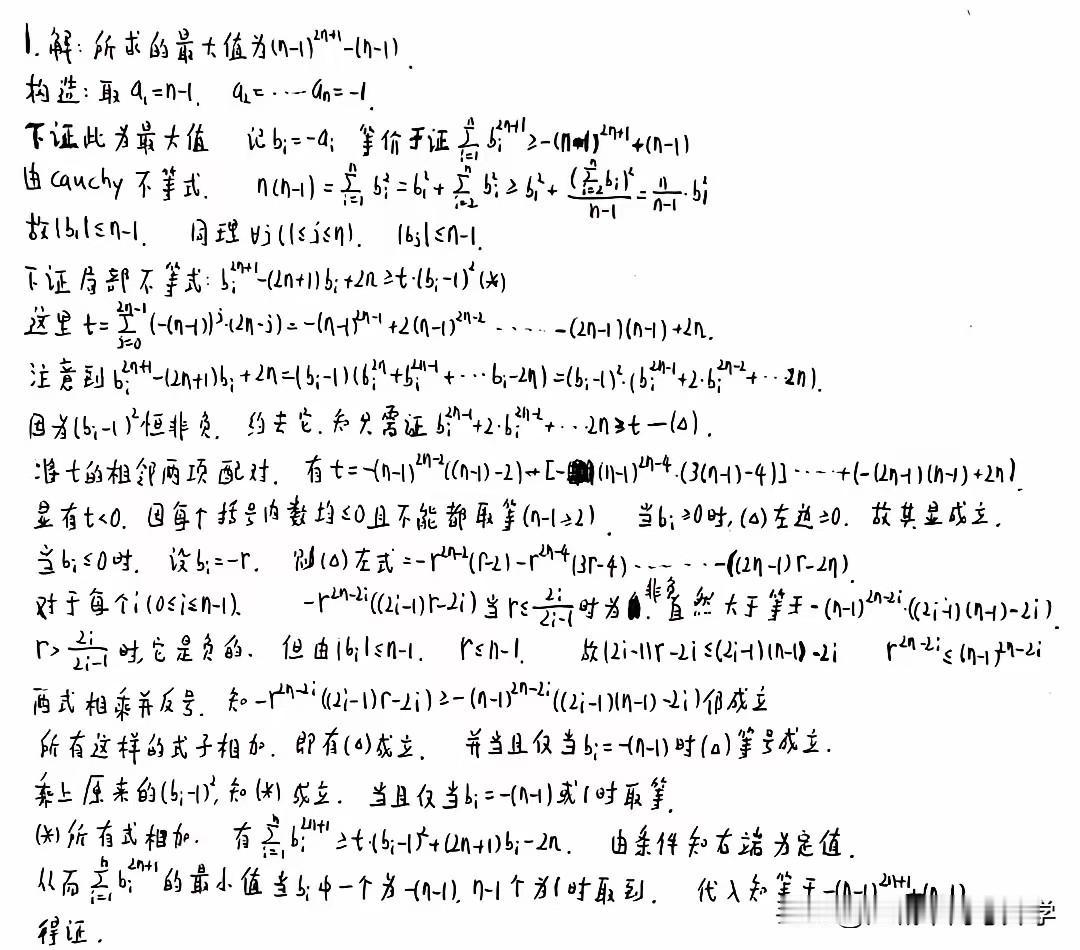 1. 解: 所求的最大值为(n-1)^{2n+1}-(n-1).
构造: 取 a_1=n-1. a_2=…a_n=-1.
下证此为最大值 记b_i=-a_i 等价于证 \sum_{i=1}^{n} b_i^{2n+1} ≥ -(n-1)^{2n+1}+(n-1)
由cauchy不等式. n(n-1)=\sum_{i=1}^{n} b_i^2=b_1^2+\sum_{i=2}^{n} b_i^2 ≥ b_1^2+\frac{(\sum_{i=2}^{n} b_i)^2}{n-1}=\frac{n}{n-1}·b_1^2
故|b_1|≤n-1. 同理 ∀j(1≤j≤n). |b_j|≤n-1.
下证局部不等式: b_i^{2n+1}-(2n+1)b_i+2n ≥ t·(b_i-1)^2 (*)
这里 t=\sum_{j=0}^{2n-1}(-(n-1))^j·(2n-j)=-(n-1)^{2n-1}+2(n-1)^{2n-2}……-(2n-1)(n-1)+2n.
注意到 b_i^{2n+1}-(2n+1)b_i+2n=(b_i-1)(b_i^{2n}+b_i^{2n-1}+…b_i-2n)=(b_i-1)^2·(b_i^{2n-1}+2·b_i^{2n-2}+…2n).
因为(b_i-1)^2恒非负. 约去它. 知只需证 b_i^{2n-1}+2·b_i^{2n-2}+…2n≥t—(△).
将t的相邻两项配对. 有 t=-(n-1)^{2n-2}((n-1)-2)+[-(n-1)^{2n-4}·(3(n-1)-4)]……+(-(2n-1)(n-1)+2n).
显有t<0. 因每个括号内数均≤0且不能都取等(n-1≥2). 当b_i≥0时, (△)左边≥0. 故其显成立.
当b_i≤0时. 设b_i=-r. 则(△)左式=-r^{2n-2}(r-2)-r^{2n-4}(3r-4)……-((2n-1)r-2n).
对于每个i(0≤i≤n-1). -r^{2n-2i}((2i-1)r-2i) 当r≤\frac{2i}{2i-1}时为非负. 自然大于等于-(n-1)^{2n-2i}·((2i-1)(n-1)-2i).
r>\frac{2i}{2i-1}时, 它是负的. 但由|b_i|≤n-1. r≤n-1. 故(2i-1)r-2i≤(2i-1)(n-1)-2i r^{2n-2i}≤(n-1)^{2n-2i}
两式相乘并反号. 知-r^{2n-2i}((2i-1)r-2i)≥-(n-1)^{2n-2i}((2i-1)(n-1)-2i)仍成立
所有这样的式子相加. 即有(△)成立. 并当且仅当b_i=-(n-1)时(△)等号成立.
乘上原来的(b_i-1)^2, 知(*)成立. 当且仅当b_i=-(n-1)或1时取等.
(*)所有式相加. 有\sum_{i=1}^{n} b_i^{2n+1}≥t·(b_i-1)^2+(2n+1)b_i-2n. 由条件知右端为定值.
从而\sum_{i=1}^{n} b_i^{2n+1}的最小值当b_i中一个为-(n-1), n-1个为1时取到. 代入知等于-(n-1)^{2n+1}+(n-1)
得证.
学